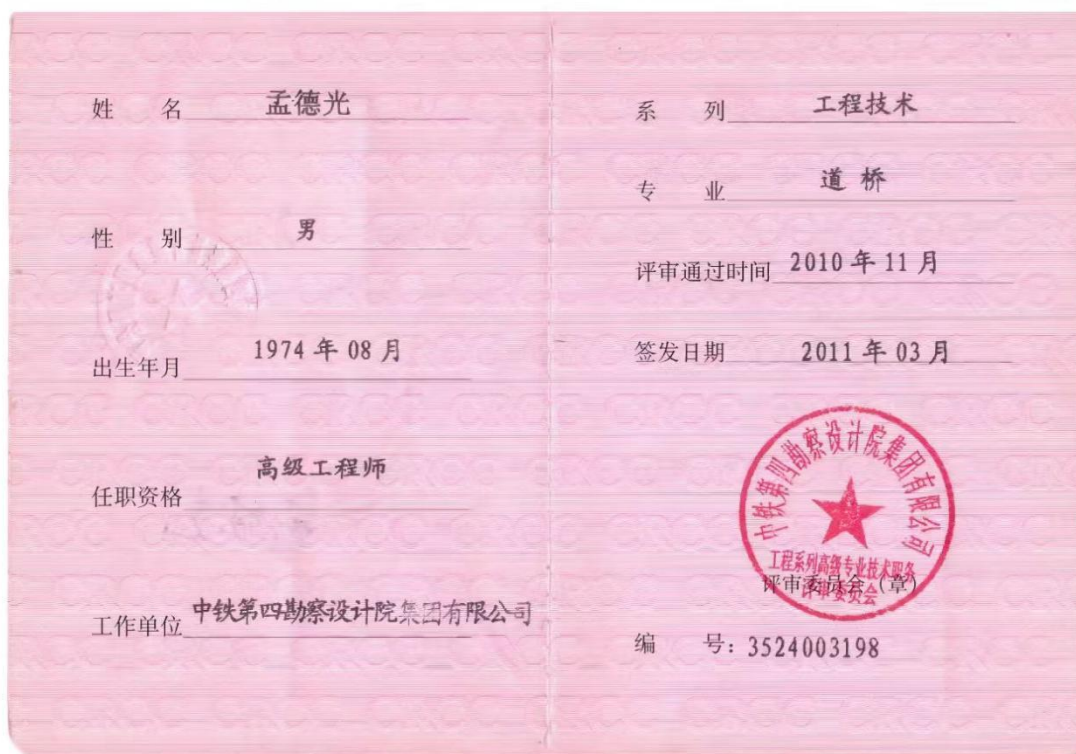 姓 名 孟德光
性 别 男
出生年月 1974 年 08 月
任职资格 高级工程师
工作单位 中铁第四勘察设计院集团有限公司
系 列 工程技术
专 业 道 桥
评审通过时间 2010 年 11 月
签发日期 2011 年 03 月
中铁第四勘察设计院集团有限公司
工程系列高级专业技术职务
评审委员会
评审委员会（章）
编 号: 3524003198